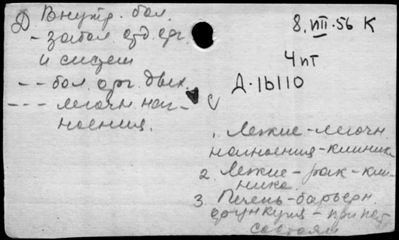 Д Внутр. бол.
- забол. отд. орг.
и систем
-- бол. орг. дых.
--- легочн. наг-
ноения.
8.VIII.56 К
4 пт
Д-16110
1. Легкие - легочн.
нагноения - клиника
2. Легкие - рак - кли-
ника
3. Печень - барьерн.
функция - при пат.
состоян.